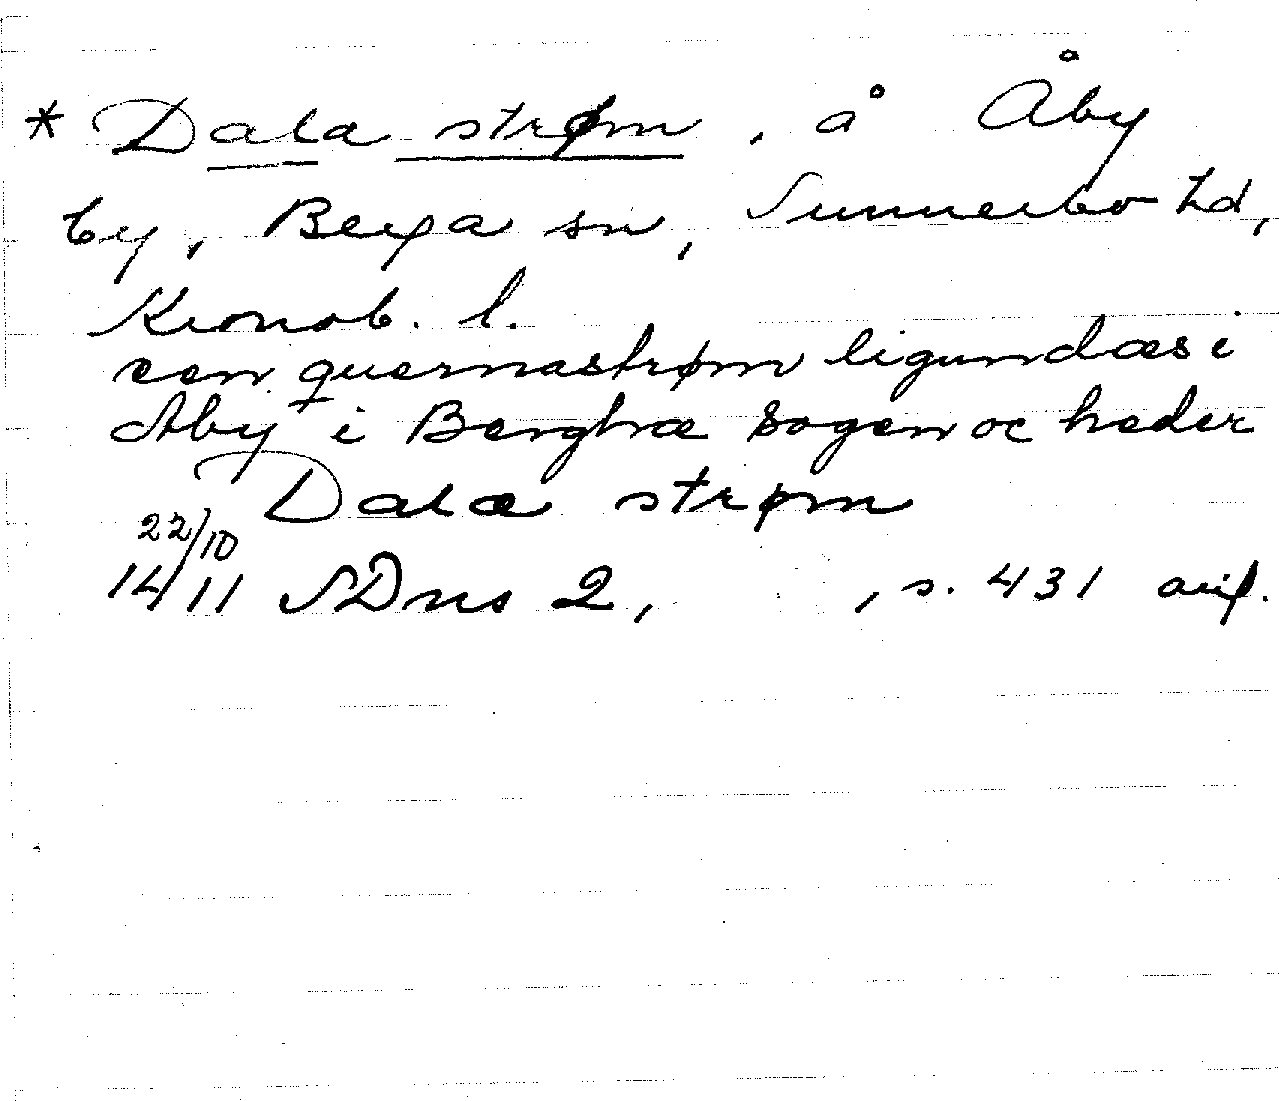 * Dala strøm, å Åby
by, Berga sn, Sunnerbo hd,
Kronob. l.
een quernastrøm ligundæs i
Aby i Berghæ sogen oc heder
Dalæ strøm
22/10
14/11 SDns 2, , s. 431 avs.